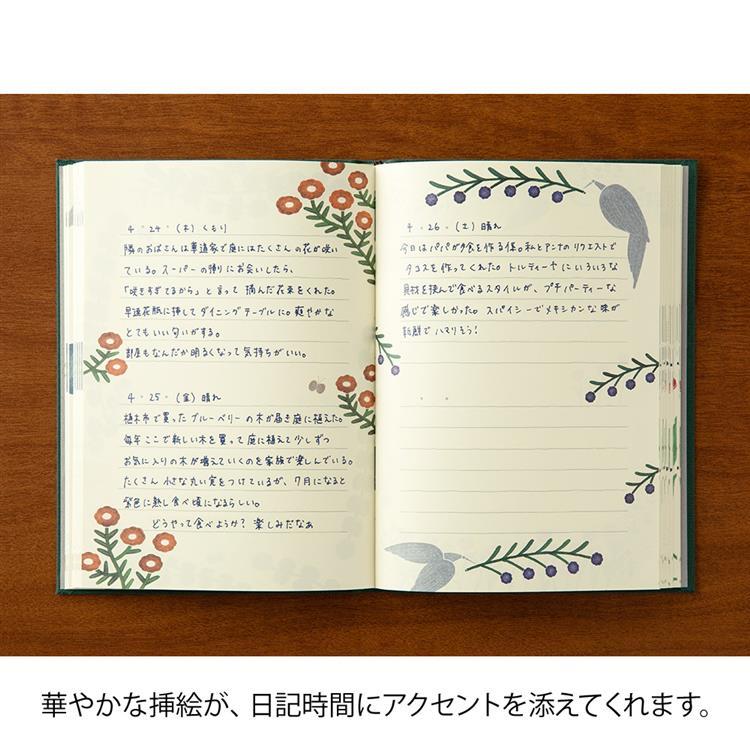 4・24・(木) くもり
隣のおばさんは華道家で庭にはたくさんの花が咲い
ている。スーパーの帰りにお会いしたら、
「咲きすぎてるから」と言って 摘んだ花束をくれた。
早速花瓶に挿してダイニングテーブルに。爽やかな
とてもいい匂いがする。
部屋もなんだか明るくなって気持ちがいい。
4・25・(金) 晴れ
植木市で買ったブルーベリーの木が届き庭に植えた。
毎年ここで新しい木を買って庭に植えて少しずつ
お気に入りの木が増えていくのを家族で楽しんでいる。
たくさん小さな丸い実をつけているが、7月になると
紫色に熟し食べ頃になるらしい。
どうやって食べようか？楽しみだなぁ
4・26・(土) 晴れ
今日はパパが夕食を作る係。私とアンナのリクエストで
タコスを作ってくれた。トルティーヤにいろいろな
具材を挟んで食べるスタイルが、プチパーティーな
感じで楽しかった。スパイシーでメキシカンな味が
新鮮でハマりそう！
華やかな挿絵が、日記時間にアクセントを添えてくれます。